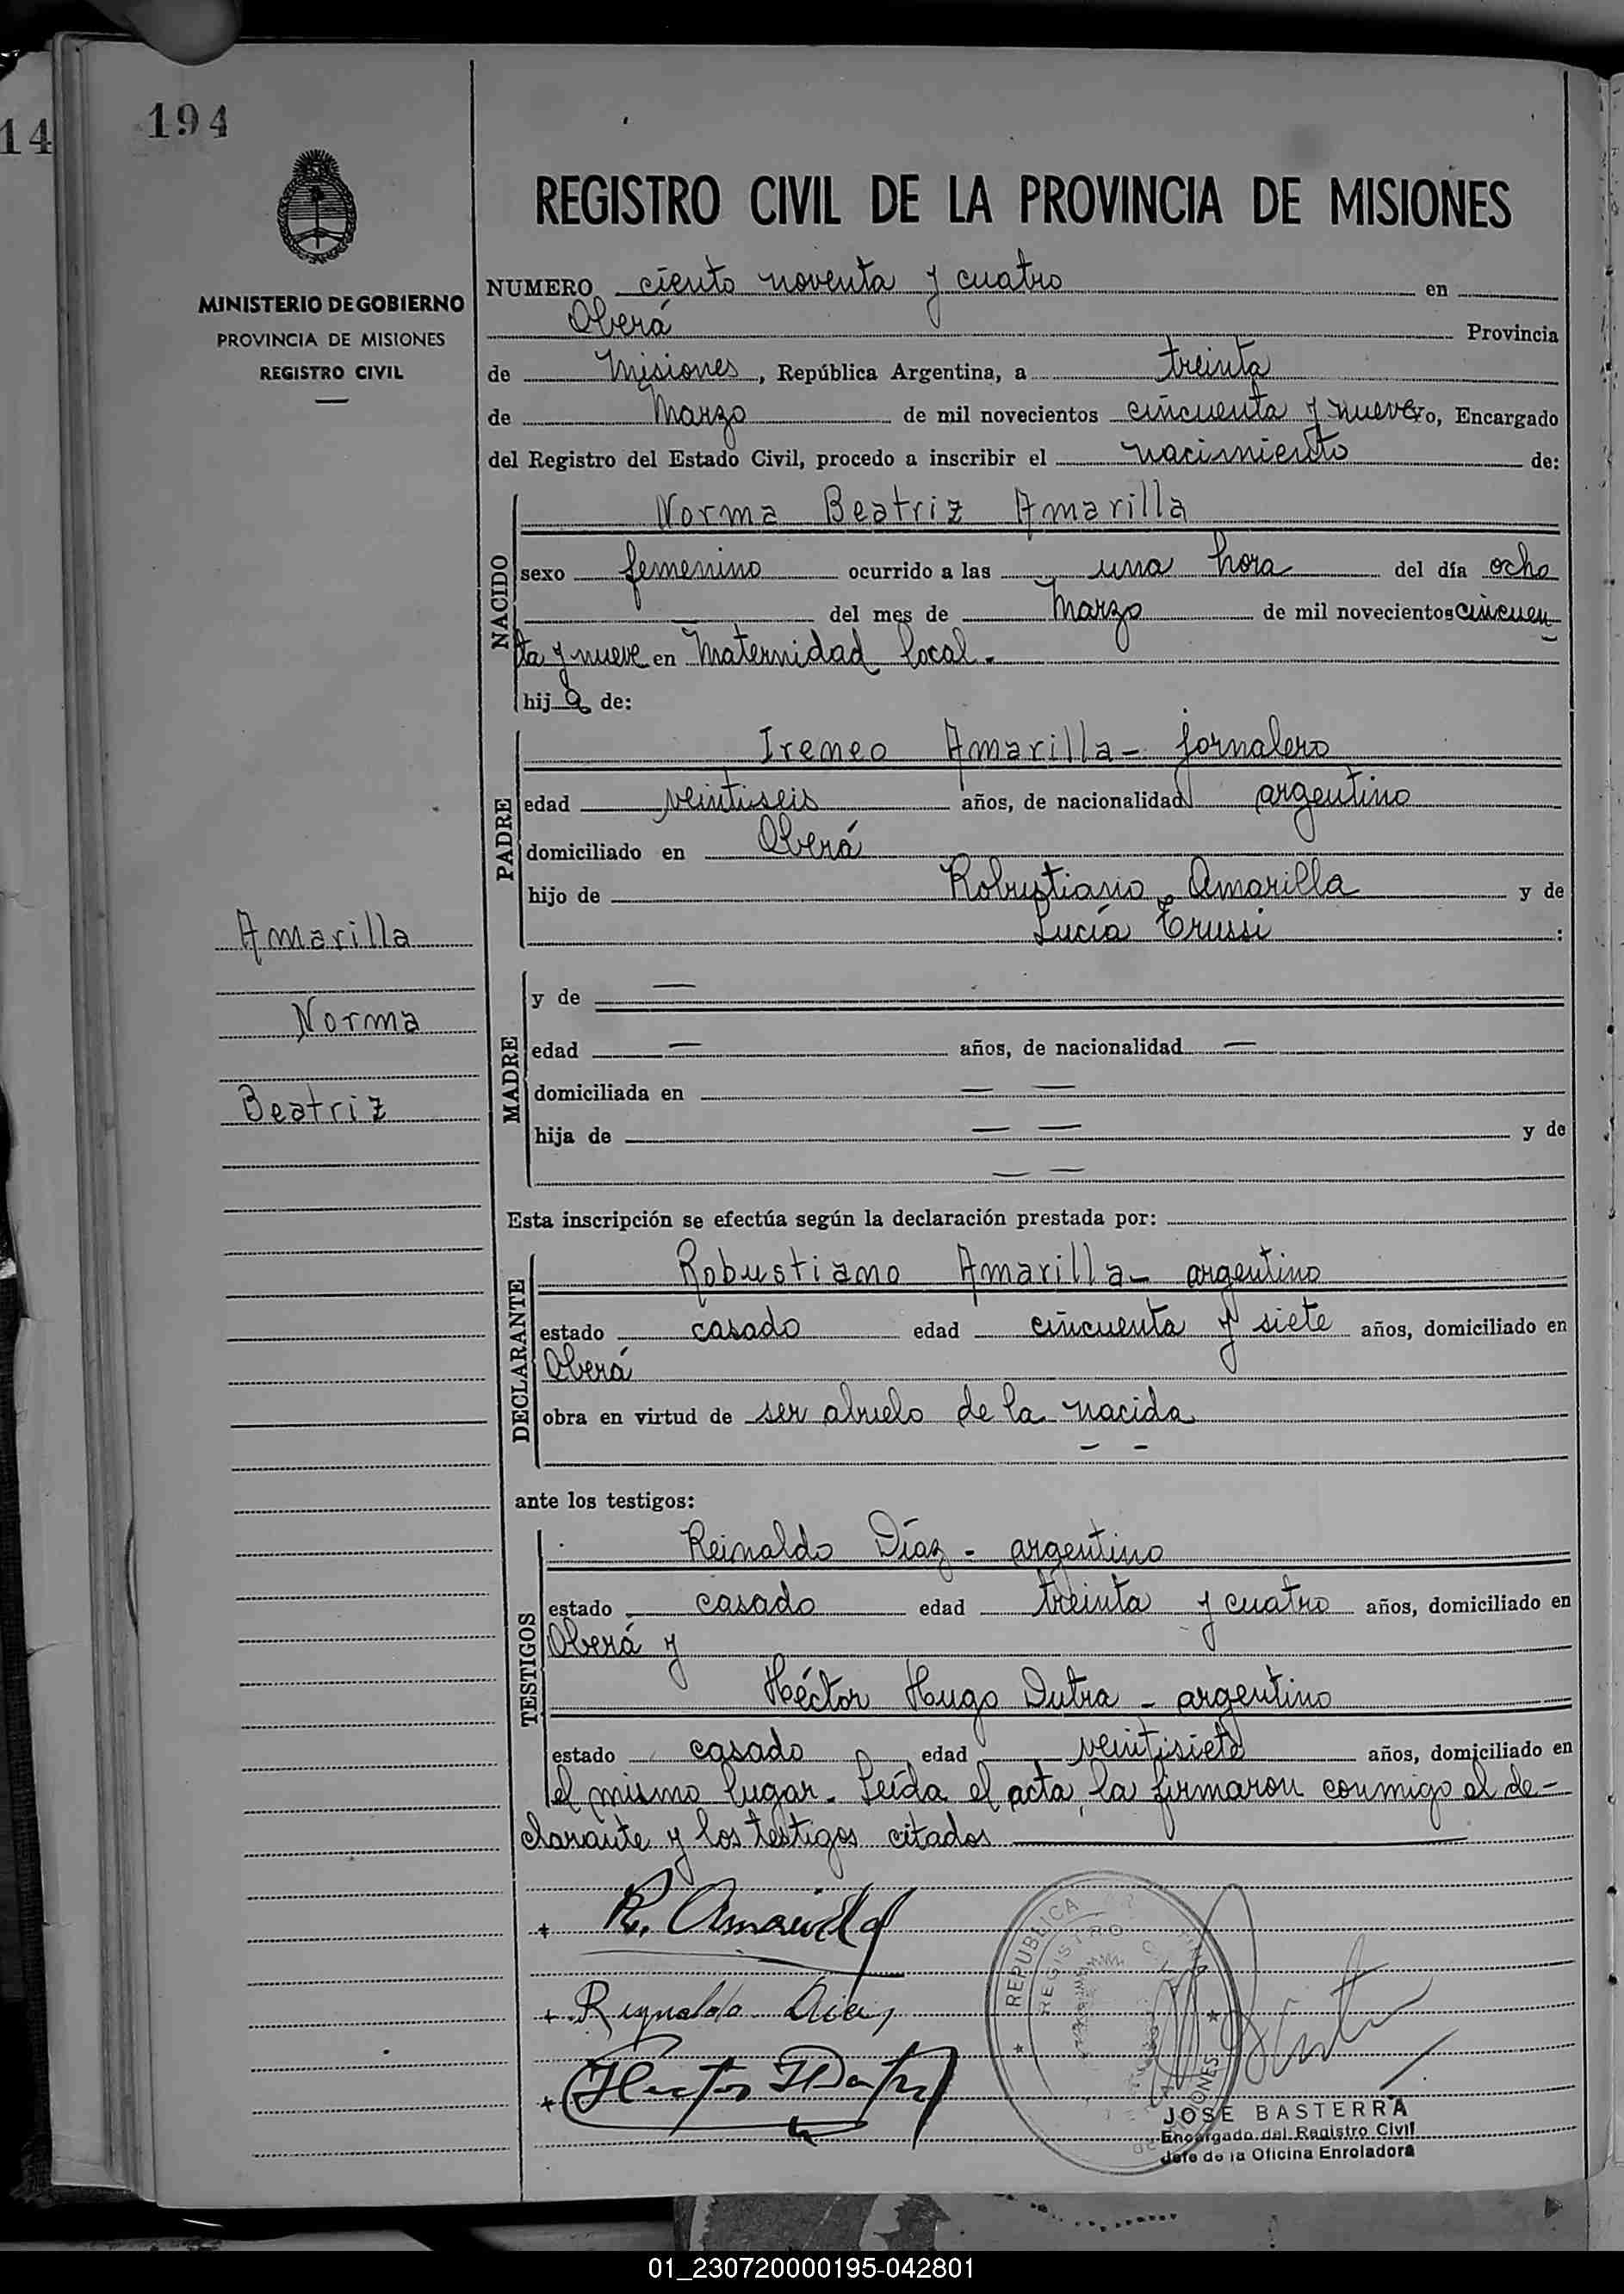 14
194
MINISTERIO DE GOBIERNO
PROVINCIA DE MISIONES
REGISTRO CIVIL
REGISTRO CIVIL DE LA PROVINCIA DE MISIONES
NUMERO ciento noventa y cuatro en
Oberá Provincia
de Misiones, República Argentina, a treinta
de Marzo de mil novecientos cincuenta y nueve, Encargado
del Registro del Estado Civil, procedo a inscribir el nacimiento de:
NACIDO
Norma Beatriz Amarilla
sexo femenino ocurrido a las una hora del día ocho
del mes de Marzo de mil novecientos cincuen
ta y nueve en Maternidad local.
hija de:
PADRE
Ireneo Amarilla - jornalero
edad veintiseis años, de nacionalidad argentino
domiciliado en Oberá
hijo de Robustiano Amarilla y de
Lucía Trussi :
Amarilla
Norma
Beatriz
MADRE
y de —
edad — años, de nacionalidad —
domiciliada en — —
hija de — — y de
— —
Esta inscripción se efectúa según la declaración prestada por:
DECLARANTE
Robustiano Amarilla - argentino
estado casado edad cincuenta y siete años, domiciliado en
Oberá
obra en virtud de ser abuelo de la nacida
— —
ante los testigos:
TESTIGOS
Reinaldo Díaz - argentino
estado casado edad treinta y cuatro años, domiciliado en
Oberá y
Héctor Hugo Dutra - argentino
estado casado edad veintisiete años, domiciliado en
el mismo lugar. Leída el acta, la firmaron conmigo el de-
clarante y los testigos citados
+ R. Amarilla
+ Reynaldo Diaz
+ Hector H Dutra
REPUBLICA
REGISTRO
MISIONES
JOSE BASTERRA
Encargado del Registro Civil
Jefe de la Oficina Enroladora
01_230720000195-042801